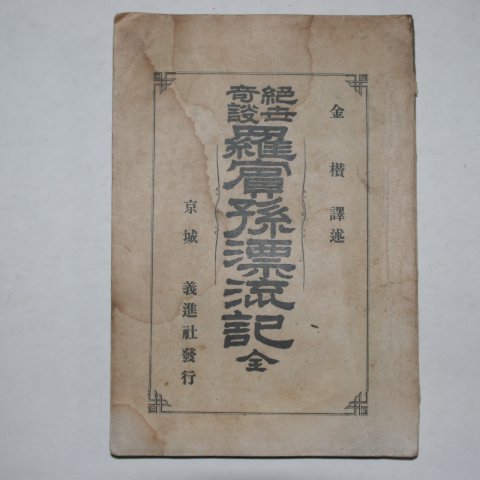 金 楷 譯述
絕世
奇談
羅賓孫漂流記 全
京城 義進社發行